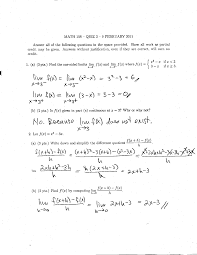 MATH 120 - QUIZ 2 - 8 FEBRUARY 2011
Answer all of the following questions in the space provided. Show all work as partial
credit may be given. Answers without justification, even if they are correct, will earn no
credit.
1. (a) (2 pts.) Find the one-sided limits lim f(x) and lim f(x) where f(x) =
lim f(x) = lim (x²-x) = 3²-3 = 6
x→3⁻ x→3⁻
lim f(x) = lim (3-x) = 3-3 = 0
x→3⁺ x→3⁺
(b) (1 pt.) Is f(x) given in part (a) continuous at x = 3? Why or why not?
No. Because lim f(x) does not exist.
x→3
2. Let f(x) = x² - 3x.
(a) (3 pts.) Write down and simplify the difference quotient f(x+h) - f(x) / h
f(x+h)-f(x) / h = (x+h)²-3(x+h)-(x²-3x) / h
= 2xh+h²-3h / h = h(2x+h-3) / h = 2x+h-3
(b) (2 pts.) Find f'(x) by computing lim f(x+h) - f(x) / h
lim f(x+h)-f(x) / h = lim 2x+h-3 = 2x-3
h→0 h→0